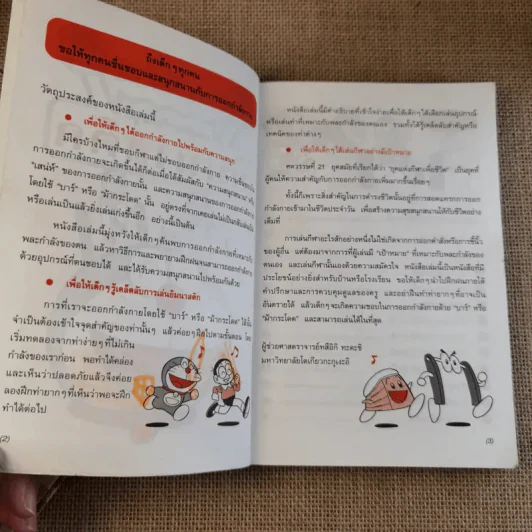 ถึงเด็กๆทุกคน
ขอให้ทุกคนชื่นชอบและสนุกสนานกับการออกกำลังกาย
วัตถุประสงค์ของหนังสือเล่มนี้
● เพื่อให้เด็กๆได้ออกกำลังกายไปพร้อมกับความสนุก
มีใครบ้างไหมที่ชอบกีฬาแต่ไม่ชอบออกกำลังกาย ความชื่นชอบ
การออกกำลังกายจะเกิดขึ้นได้ก็ต่อเมื่อได้สัมผัสกับ "ความสนุกสนาน"
"เสน่ห์" ของการออกกำลังกายนั้น และความสนุกสนานของการออกกำลังกาย
โดยใช้ "บาร์" หรือ "ม้ากระโดด" นั้น อยู่ตรงที่จากตอนเล่นไม่เป็นกลับเล่นเป็น
หรือเล่นเป็นแล้วยิ่งเล่นเก่งขึ้นอีก อย่างนี้เป็นต้น
หนังสือเล่มนี้มุ่งหวังให้เด็กๆค้นพบการออกกำลังกายที่เหมาะกับ
พละกำลังของตน แล้วหาวิธีการและพยายามฝึกฝนจนสามารถออกกำลังกาย
ด้วยอุปกรณ์ที่ตนชอบได้ และได้รับความสนุกสนานไปพร้อมกันด้วย
● เพื่อให้เด็กๆรู้เคล็ดลับการเล่นยิมนาสติก
การที่เราจะออกกำลังกายโดยใช้ "บาร์" หรือ "ม้ากระโดด" ได้นั้น
จำเป็นต้องเข้าใจจุดสำคัญของท่านั้นๆ แล้วค่อยๆฝึกไปตามขั้นตอน โดย
เริ่มทดลองจากท่าง่ายๆที่ไม่เกิน
กำลังของเราก่อน พอทำได้คล่อง
และเห็นว่าปลอดภัยแล้วจึงค่อย
ลองฝึกท่ายากๆที่เห็นว่าพอจะฝึก
ทำได้ต่อไป
(2)
หนังสือเล่มนี้มีคำอธิบายที่เข้าใจง่ายเพื่อให้เด็กๆได้เลือกเล่นอุปกรณ์
หรือเล่นท่าที่เหมาะกับพละกำลังของตนเอง รวมทั้งได้รู้เคล็ดลับสำคัญหรือ
เทคนิคของท่าต่างๆ
● เพื่อให้เด็กๆได้เล่นกีฬาอย่างมีเป้าหมาย
ศตวรรษที่ 21 ยุคสมัยที่เรียกได้ว่า "ยุคแห่งกีฬาเพื่อชีวิต" เป็นยุคที่
ผู้คนให้ความสำคัญกับการออกกำลังกายเพิ่มมากขึ้นเรื่อยๆ
ทั้งนี้ก็เพราะสิ่งสำคัญในการดำรงชีวิตนั้นอยู่ที่การสอดแทรกการออก
กำลังกายเข้ามาในชีวิตประจำวัน เพื่อสร้างความสุขสนุกสนานให้กับชีวิตอย่าง
เต็มที่
การเล่นกีฬาอะไรสักอย่างหนึ่งไม่ใช่เกิดจากการออกคำสั่งหรือการชี้นิ้ว
ของผู้อื่น แต่ต้องมาจากการที่ผู้เล่นมี "เป้าหมาย" ที่เหมาะกับกำลังของ
ตนเอง และเล่นกีฬานั้นเองด้วยความสมัครใจ หนังสือเล่มนี้เป็นหนังสือที่มี
ประโยชน์อย่างยิ่งสำหรับบ้านหรือโรงเรียน ขอให้เด็กๆนำไปฝึกฝนภายใต้
คำปรึกษาและการควบคุมดูแลของครู และอย่าฝืนทำท่ายากๆที่อาจเป็น
อันตรายได้ แล้วเด็กๆจะเกิดความชอบในการออกกำลังกายด้วย "บาร์" หรือ
"ม้ากระโดด" และสามารถเล่นได้ในที่สุด
ผู้ช่วยศาสตราจารย์ทสึอิกิ ทะคะชิ
มหาวิทยาลัยโตเกียวกะกุงะอิ
(3)